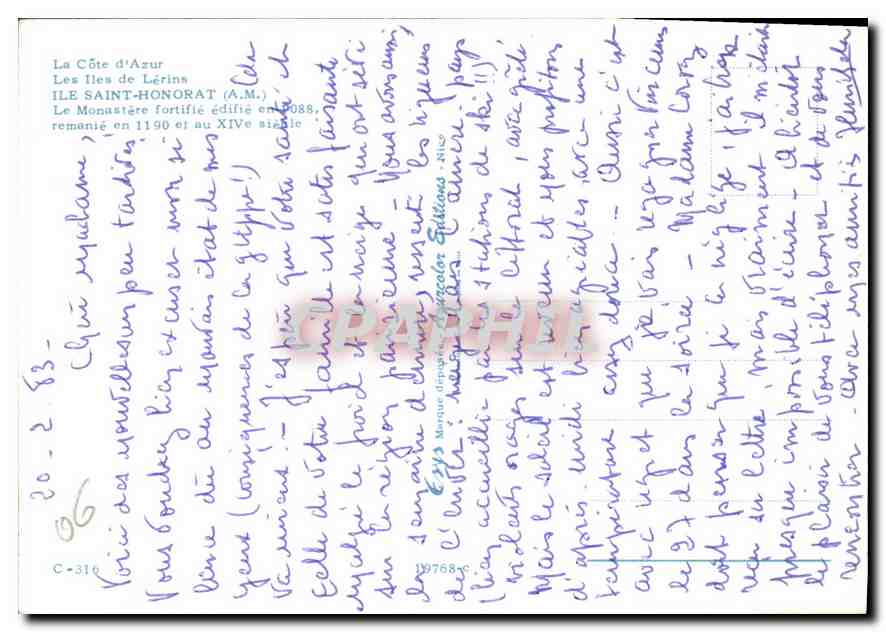 La Côte d'Azur
Les Iles de Lérins
ILE SAINT-HONORAT (A.M.)
Le Monastère fortifié édifié en 1088,
remanié en 1190 et au XIVe siècle
C-316
19768-c
Marque déposée Azurcolor Editions - Nice
CPAPHIL
06
20-2.83-
Chère Madame,
Voici des nouvelles un peu tardives
Vous voudrez bien excuser mon si
lence dû au mauvais état de mes
yeux (conséquences de la grippe!) Cela
va mieux. - J'espère que votre santé et
celle de votre famille est satisfaisante
Malgré le froid et la neige qui ont sévi
sur la région parisienne - Nous avons aussi,
la semaine dernière, ressenti les rigueurs
de l'hiver: neige dans l'arrière pays
(bien accueillie par les stations de ski!!)
violents orages sur le littoral, avec grêle
Mais le soleil est revenu et nous profitons
d'après-midi très agréables avec une
température assez douce. - Aussi c'est
avec regret que je vais regagner Vincennes
le 27 dans la soirée - Madame
doit penser que je la néglige, j'ai bien
reçu sa lettre, mais vraiment il m'était
presque impossible d'écrire - A bientôt
le plaisir de vous téléphoner et de vous
rencontrer - Avec mes amitiés